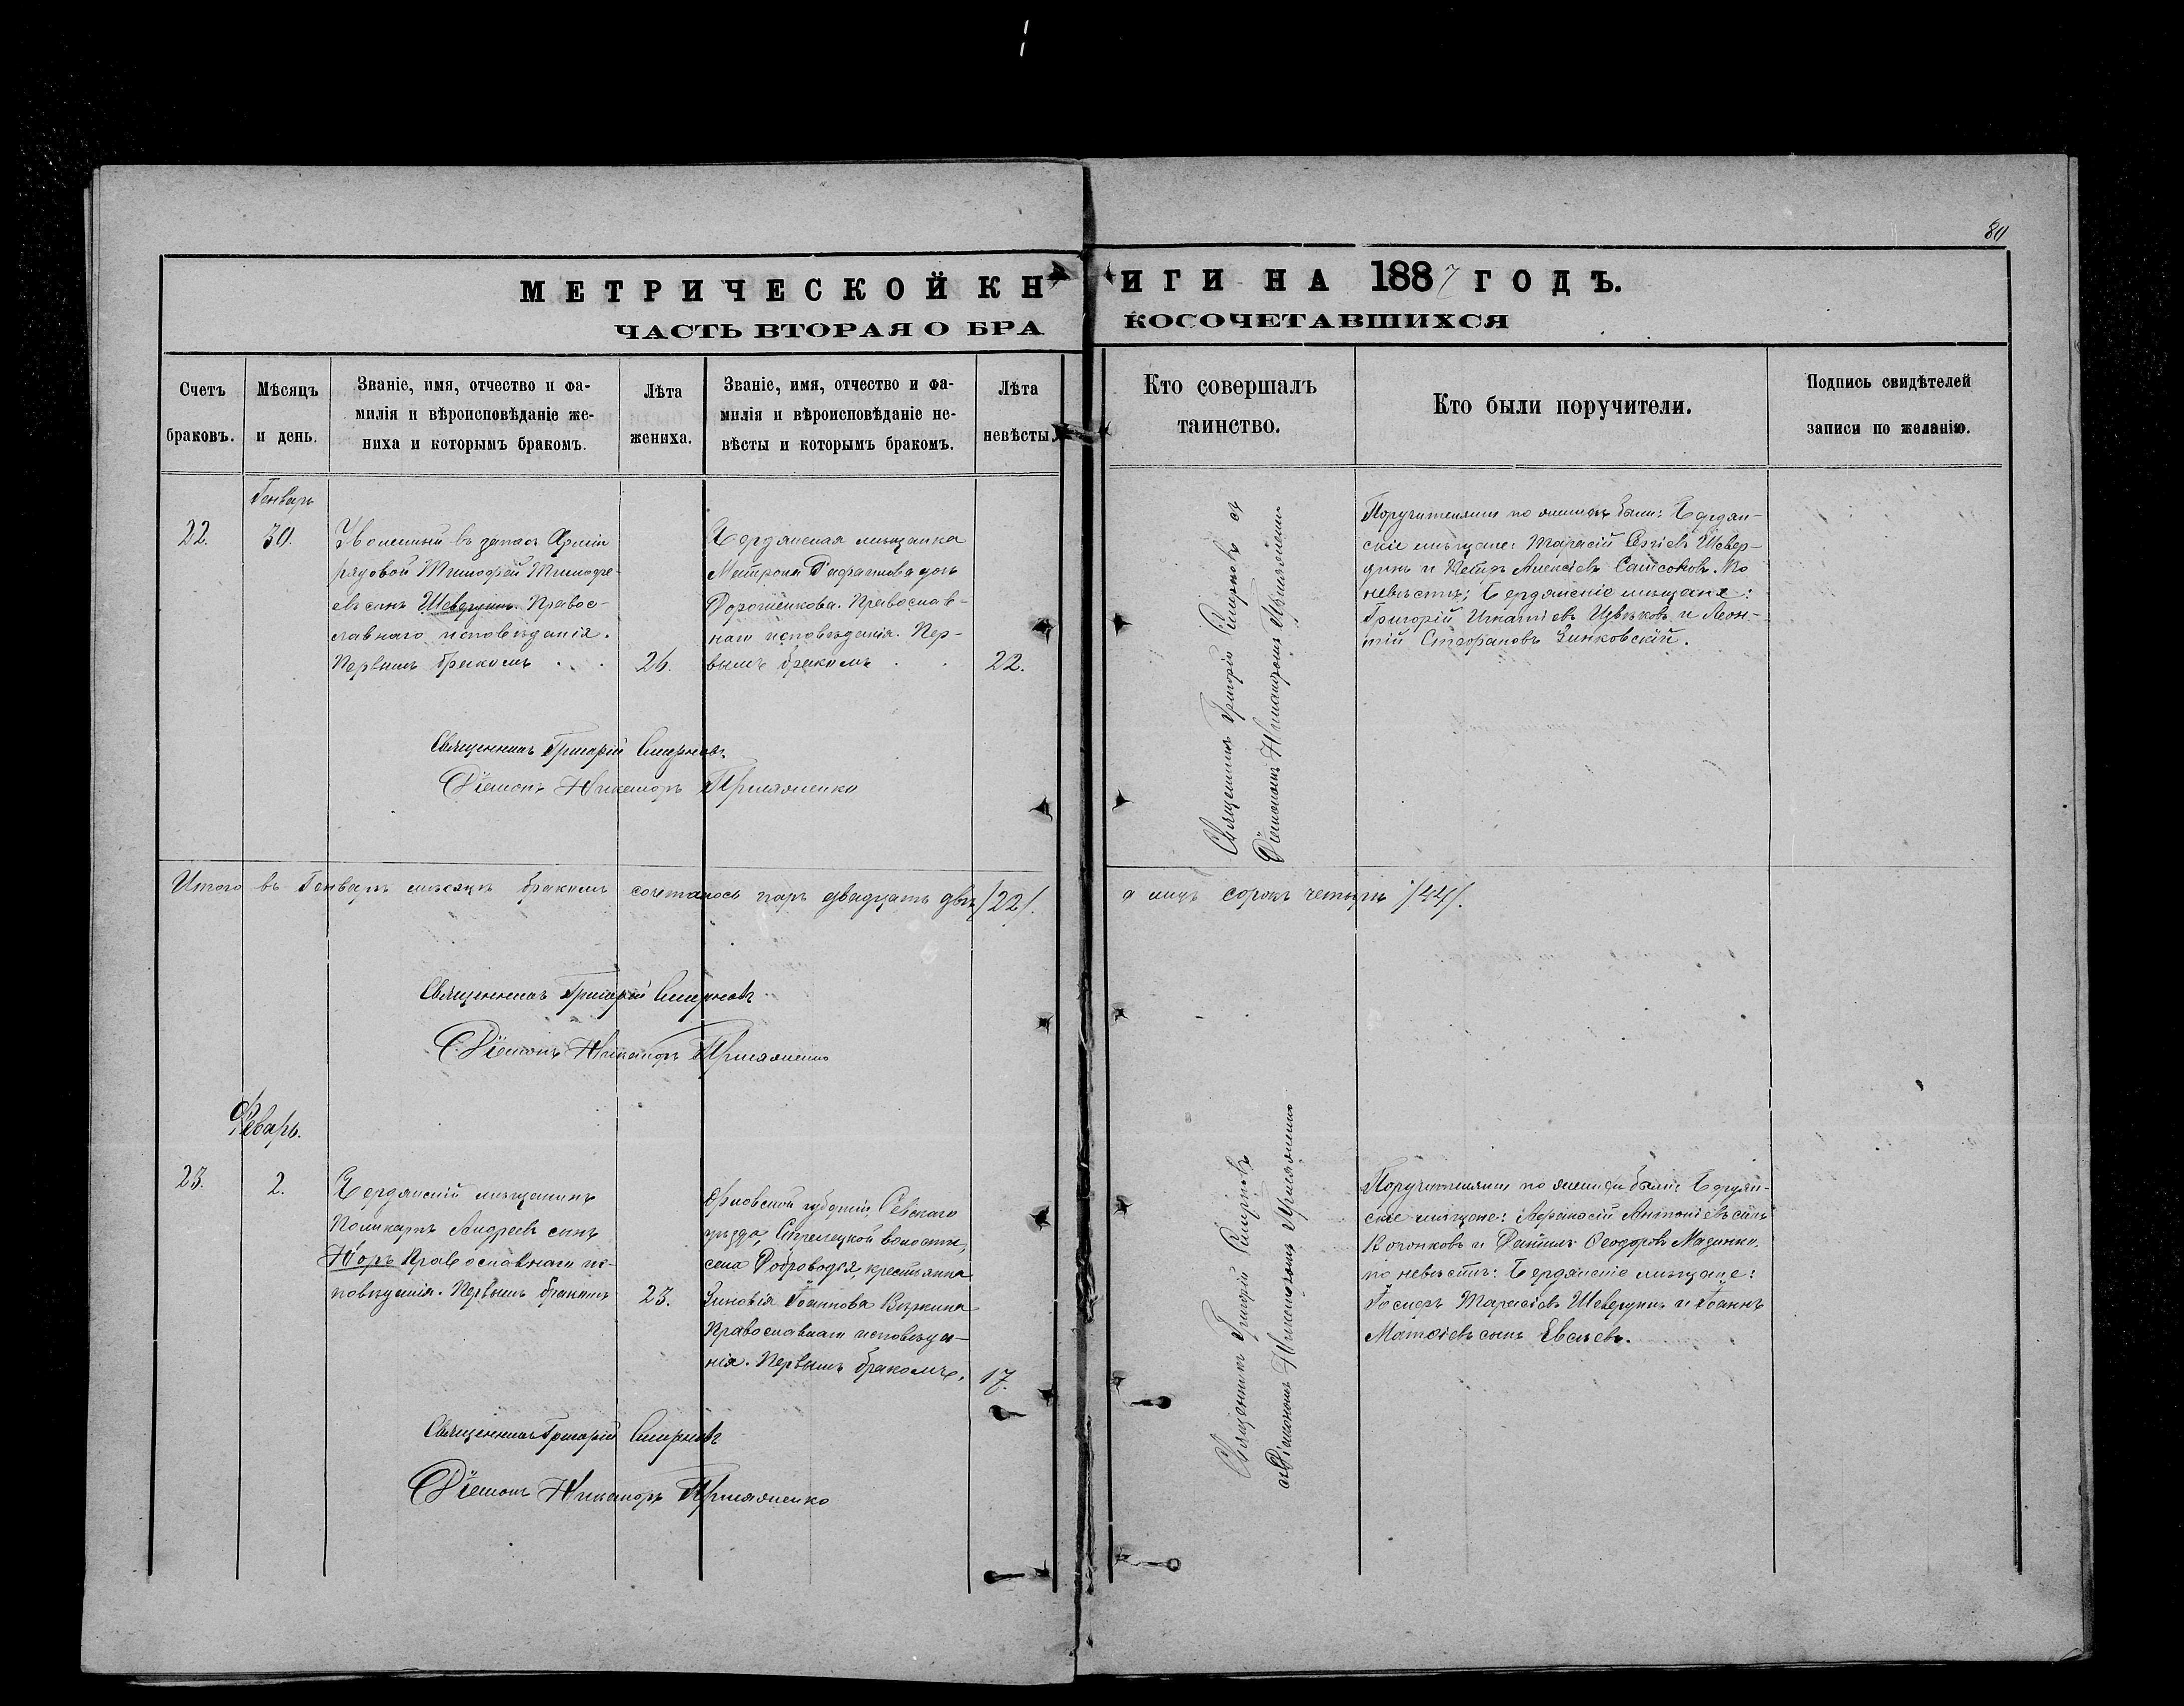 80
МЕТРИЧЕСКОЙ КНИГИ НА 1887 ГОДЪ.
ЧАСТЬ ВТОРАЯ О БРАКОСОЧЕТАВШИХСЯ
Счетъ браковъ.
Мѣсяцъ и день.
Званіе, имя, отчество и фа-
милія и вѣроисповѣданіе же-
ниха и которымъ бракомъ.
Лѣта жениха.
Званіе, имя, отчество и фа-
милія и вѣроисповѣданіе не-
вѣсты и которымъ бракомъ.
Лѣта невѣсты
Кто совершалъ
таинство.
Кто были поручители.
Подпись свидѣтелей
записи по желанію.
Генварь
22.
30.
Уволенный въ запасъ Арміи
рядовой Тимофей Тимофе-
евъ сынъ Шевердинъ. Правос-
лавнаго исповѣданія.
Первымъ бракомъ
26.
Бердянская мѣщанка
Матрона дочь
Дорошенкова. Православ-
наго исповѣданія. Пер-
вымъ бракомъ
22.
Священникъ Григорій Смирновъ съ
Діакономъ Никаноромъ
Поручителями по женихѣ были: Бердян-
скіе мѣщане: Тарасій Шевер-
динъ и Петръ Алексѣевъ Самсоновъ. По
невѣстѣ: Бердянскіе мѣщане:
Григорій Игнатіевъ Цвѣтковъ и Леон-
тій Стефановъ Зинковскій.
Священникъ Григорій Смирновъ
Діаконъ Никаноръ
Итого въ Генварѣ мѣсяцѣ бракомъ сочеталось паръ двадцать двѣ /22/.
а лицъ сорокъ четыре /44/.
Священникъ Григорій Смирновъ
Діаконъ Никаноръ
Февраль.
23.
2.
Бердянскій мѣщанинъ
Поликарпъ Андреевъ сынъ
Норъ Православнаго ис-
повѣданія. Первымъ бракомъ
23.
Орловской губерніи, Сѣвскаго
уѣзда, Стрелецкой волости,
села Доброводья, крестьянка
Зиновія Іоаннова
Православнаго исповѣда-
нія. Первымъ бракомъ.
17.
Священникъ Григорій Смирновъ
Діакономъ Никаноромъ
Поручителями по женихѣ были: Бердян-
скіе мѣщане: Афанасій Антоніевъ сынъ
и Даніилъ Феодоровъ Мазинко.
по невѣстѣ: Бердянскіе мѣщане:
Іосифъ Тарасіевъ Шевердинъ и Іоаннъ
Матѳіевъ сынъ Евсѣевъ.
Священникъ Григорій Смирновъ
Діаконъ Никаноръ